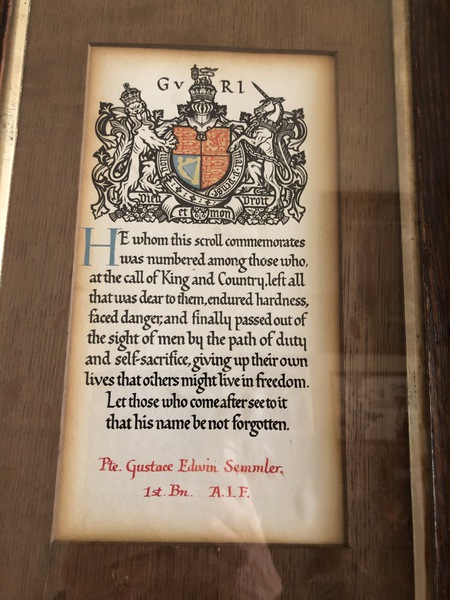 GV RI
Dieu et mon Droit
HE whom this scroll commemorates
was numbered among those who,
at the call of King and Country, left all
that was dear to them, endured hardness,
faced danger, and finally passed out of
the sight of men by the path of duty
and self-sacrifice, giving up their own
lives that others might live in freedom.
Let those who come after see to it
that his name be not forgotten.
Pte. Gustace Edwin Semmler,
1st. Bn. A.I.F.